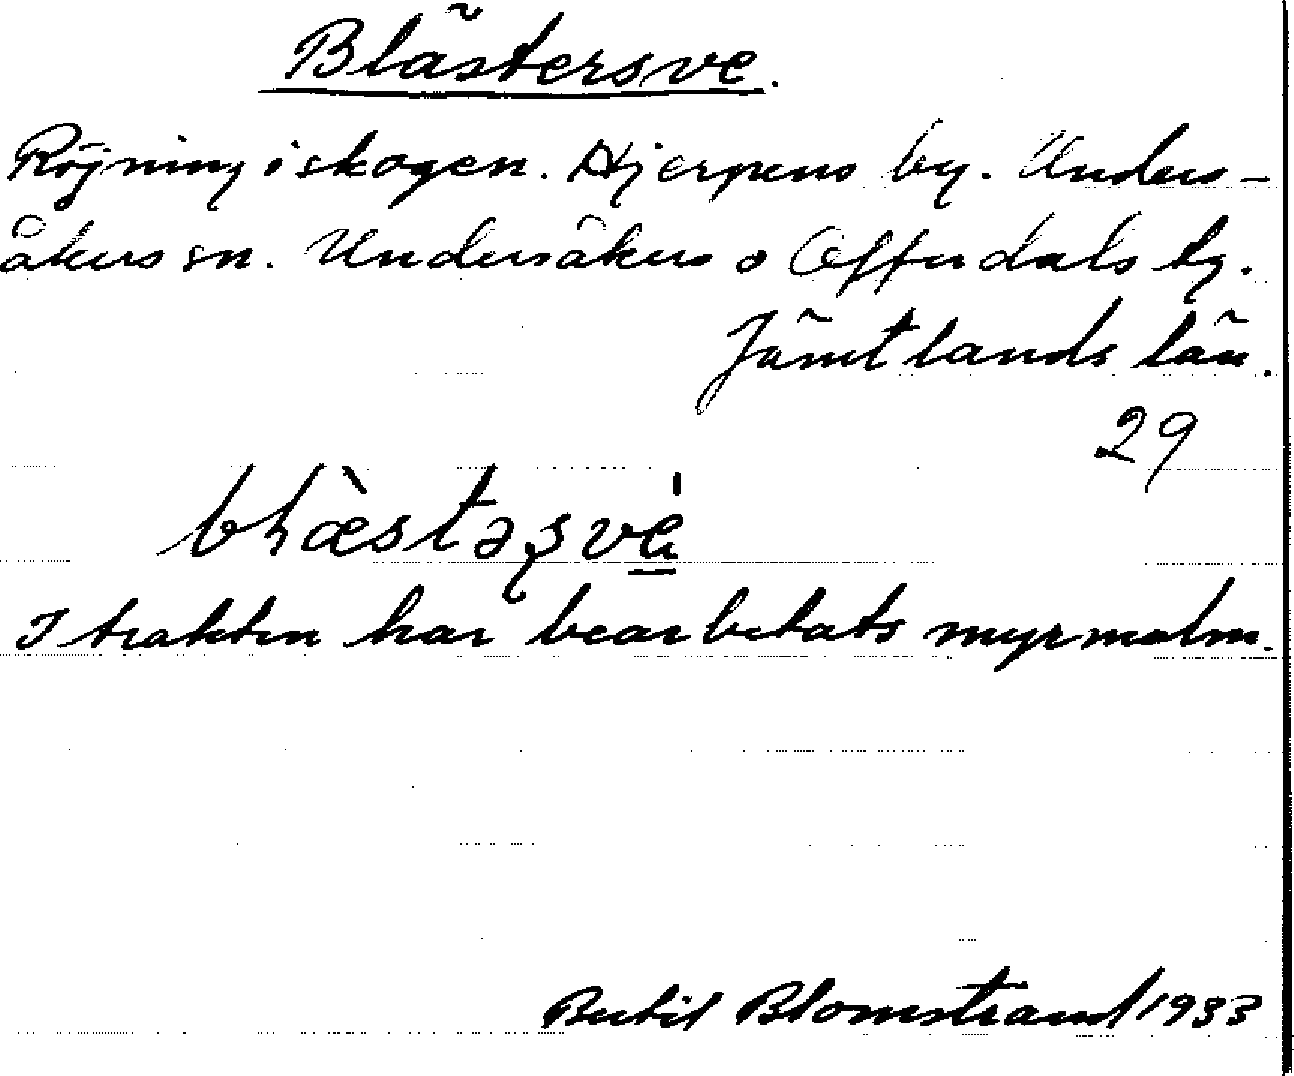 Blästersve.
Röjning i skogen. Hjerpens by. Unders-
åkers sn. Undersåkers o Offerdals tg.
Jämtlands län.
29
I trakten har bearbetats myrmalm.
Bertil Blomstrand 1933